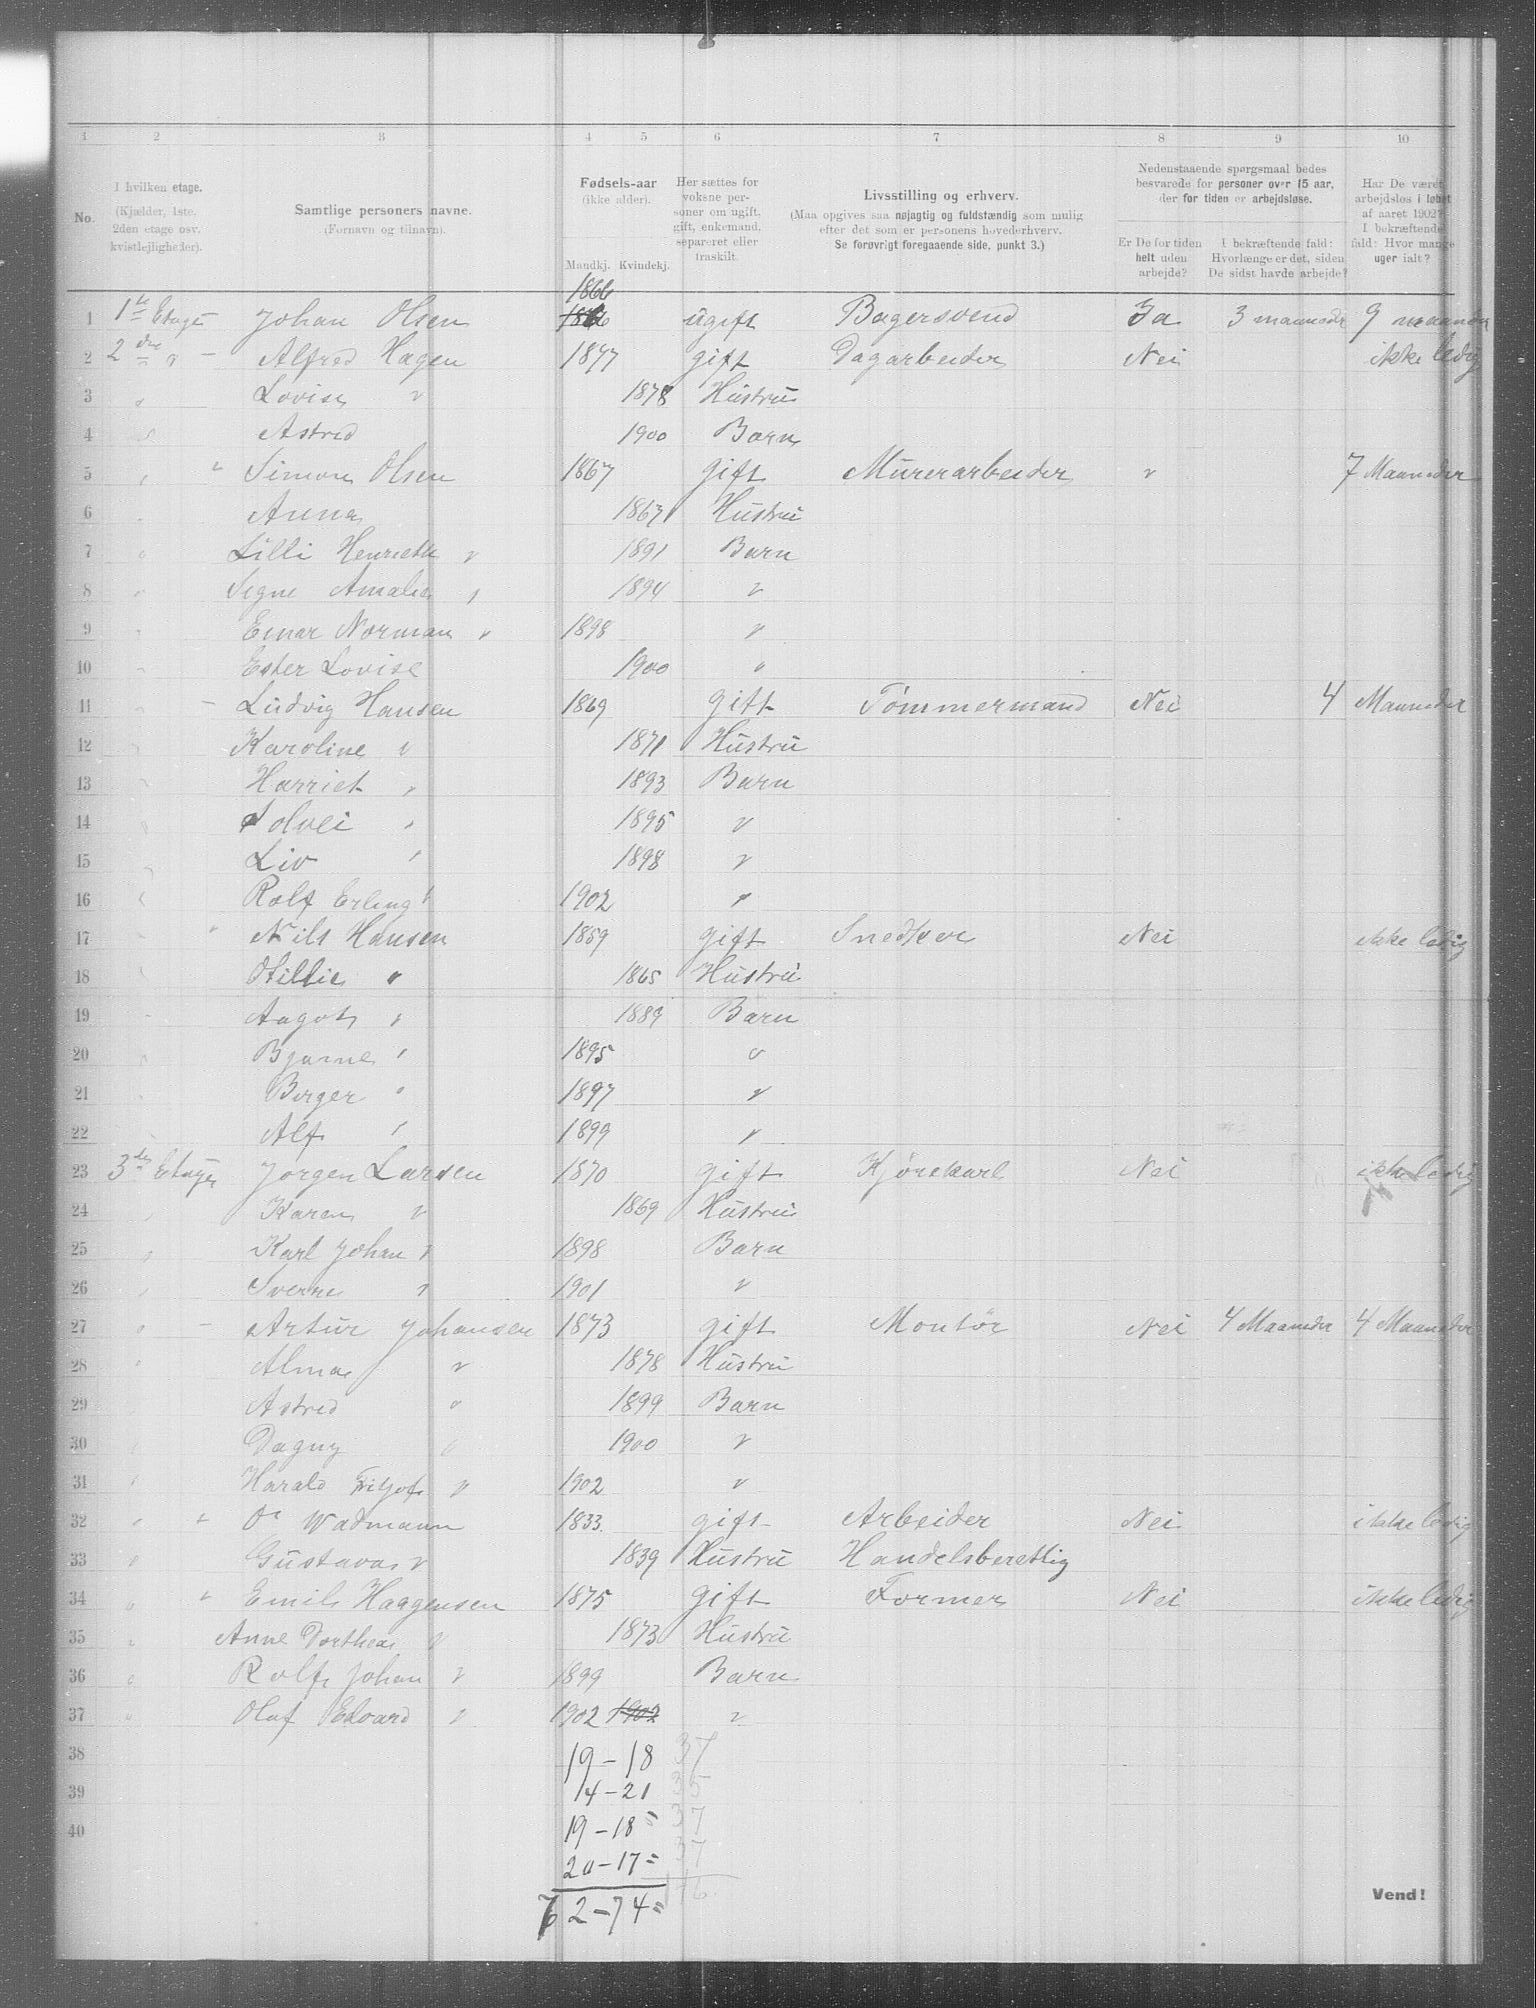 1 2 3 4 5 6 7 8 9 10
No.
I hvilken etage. (Kjælder, 1ste. 2den etage osv. kvistlejligheder).
Samtlige personers navne. (Fornavn og tilnavn).
Fødsels-aar (ikke alder). Mandkj. Kvindekj.
Her sættes for voksne personer om ugift, gift, enkemand, separeret eller fraskilt.
Livsstilling og erhverv. (Maa opgives saa nøjagtig og fuldstændig som mulig efter det som er personens hovederhverv. Se forøvrigt foregaaende side, punkt 3.)
Nedenstaaende spørgsmaal bedes besvarede for personer over 15 aar, der for tiden er arbejdsløse.
Er De for tiden helt uden arbejde?
I bekræftende fald: Hvorlænge er det, siden De sidst havde arbejde?
Har De været arbejdsløs i løbet af aaret 1902? I bekræftende fald: Hvor mange uger ialt?
1866
1 1ste Etage Johan Olsen ugift Bagersvend Ja 3 maaneder 9 maaneder
2 2den " - Alfred Hagen 1877 gift Dagarbeider Nei ikke ledig
3 " Lovise " 1878 Hustru
4 " Astrid 1900 Barn
5 " " Simon Olsen 1867 gift Murerarbeider " 7 Maaneder
6 " Anna 1867 Hustru
7 " Lilli Henriette " 1891 Barn
8 " Signe Amalie " 1894 "
9 " Einar Norman " 1898 "
10 " Ester Lovise 1900 "
11 " - Ludvig Hansen 1869 gift Tømmermand Nei 4 Maaneder
12 " Karoline " 1871 Hustru
13 " Harriet " 1893 Barn
14 " Solvei " 1895 "
15 " Liv " 1898 "
16 " Rolf Erling " 1902 "
17 " " Nils Hansen 1859 gift Snedker Nei ikke ledig
18 " Otillie " 1865 Hustru
19 " Aagot " 1889 Barn
20 " Bjarne " 1895 "
21 " Birger " 1897 "
22 " Alf " 1899 "
23 3die Etage Jørgen Larsen 1870 gift Kjørekarl Nei ikke ledig
24 " Karen " 1869 Hustru
25 " Karl Johan " 1898 Barn
26 " Sverre " 1901 "
27 " - Artur Johansen 1873 gift Montør Nei 4 Maaneder 4 Maaneder
28 " Alma " 1878 Hustru
29 Astrid " 1899 Barn
30 Dagny " 1900 "
31 " Harald Fritjof " 1902 "
32 " " Wadmann 1833 gift Arbeider Nei ikke ledig
33 " Gustava " 1839 Hustru Handelsberettig
34 " " Emil Haagensen 1875 gift Former Nei ikke ledig
35 " Anne Dorthea " 1873 Hustru
36 " Rolf Johan " 1899 Barn
37 " Olaf Edvard " 1902 1902 "
38 19-18 37
39 14-21 35
40 19-18= 37
20-17= 37
72-74= 146
Vend!